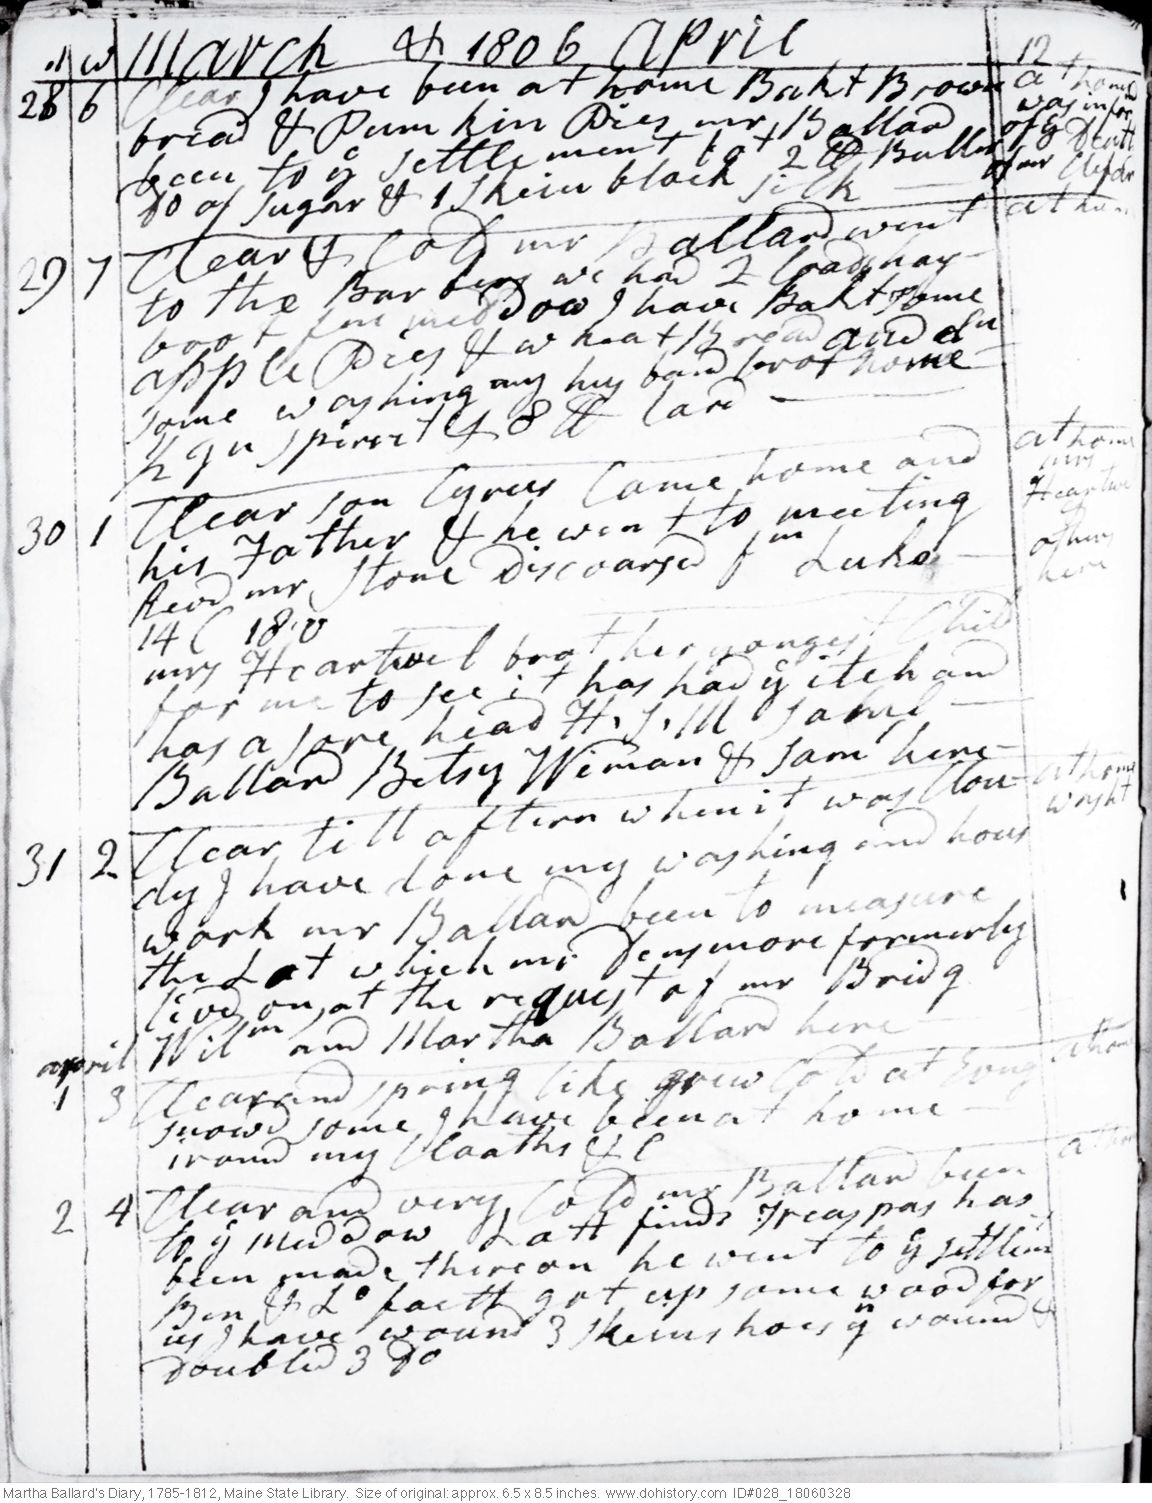 M W March & 1806 April 12
28 6 Clear I have been at home Bakt Brown at home
bread & Pumkin Pies mr Ballard was infor
been to ye settlement bot 2 lb Butter of ye Death
Do of sugar & 1 skein black silk of mr
29 7 Clear & Cold mr Ballard went at hom
to the Barbers we had 2 loads hay
brot from meddow I have Bakt some
apple Pies & wheat Bread and dun
some washing my husband brot home
1/2 gn spirrit & 8 lb lard
30 1 Clear son Cyrus Came home and at home
his Father & he went to meeting mrs
Revd mr Stone Discoarsed fm Luke Heartwel
14 C 18 v others
mrs Heartwel brot her yongest Child here
for me to see it has had ye itch and
has a sore head H. S. M Saml
Ballard Betsy Wiman & Sam here
31 2 Clear till aftern when it was Clou at home
dy I have done my washing and hous washt
work mr Ballard been to measure
the Lot which mr Densmore formerly
livd on, at the request of mr Bridg
Wilm and Martha Ballard here
april
1 3 Clear and spring like grew Cold at Evng at hom
snowd some I have been at home
irond my Cloaths & C
2 4 Clear and very Cold mr Ballard been at hom
to ye meddow Lott finds Treaspas has
been made thereon he went to ye settlemt
Ben & Lo faett got up some wood for
us I have wound 3 skeins hois yn wound &
doubled 3 Do
Martha Ballard's Diary, 1785-1812, Maine State Library. Size of original: approx. 6.5 x 8.5 inches. www.dohistory.com ID#028_18060328